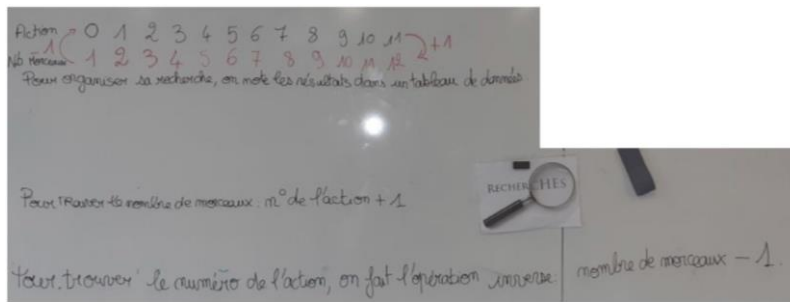 Action 0 1 2 3 4 5 6 7 8 9 10 11 +1
-1 Nb morceaux 1 2 3 4 5 6 7 8 9 10 11 12
Pour organiser sa recherche, on note les résultats dans un tableau de données
RECHERCHES
Pour trouver le nombre de morceaux : n° de l'action + 1
Pour trouver le numéro de l'action, on fait l'opération inverse : nombre de morceaux - 1.